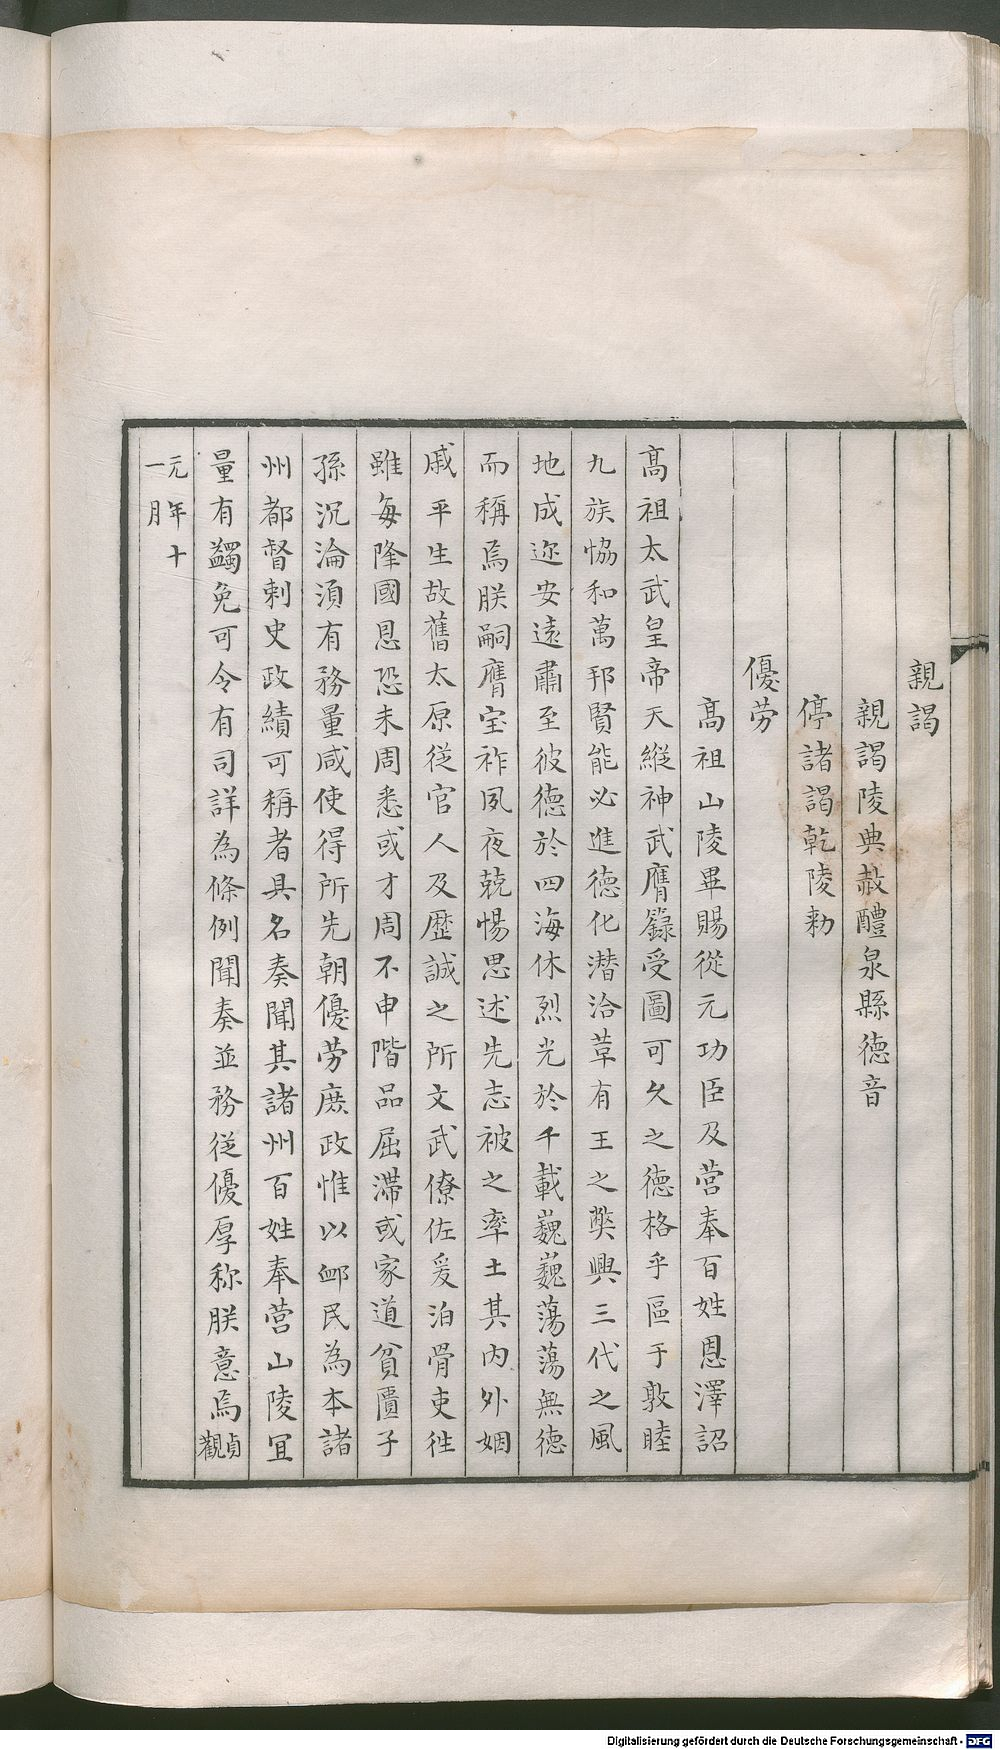 親謁
親謁陵典赦醴泉縣德音
停諸謁乾陵勅
優劳
髙祖山陵畢賜從元功臣及营奉百姓恩澤詔
髙祖太武皇帝天縱神武膺籙受圖可久之德格乎區于敦睦
九族恊和萬邦賢能必進德化潜洽革有王之弊興三代之風
地成迩安遠肅至彼德於四海休烈光於千載巍巍蕩蕩無德
而稱焉朕嗣膺宝祚夙夜兢惕思述先志被之率土其内外姻
戚平生故舊太原從官人及歷誠之所文武僚佐爰泊骨吏徃
雖每降國恩恐未周悉或才周不申階品屈滯或家道貧匱子
孫沉淪湏有務量咸使得所先朝優劳庶政惟以卹民為本諸
州都督刺史政績可稱者具名奏聞其諸州百姓奉营山陵宜
量有蠲免可令有司詳為條例聞奏並務從優厚称朕意焉貞觀
元年十
一月
Digitalisierung gefördert durch die Deutsche Forschungsgemeinschaft - DFG